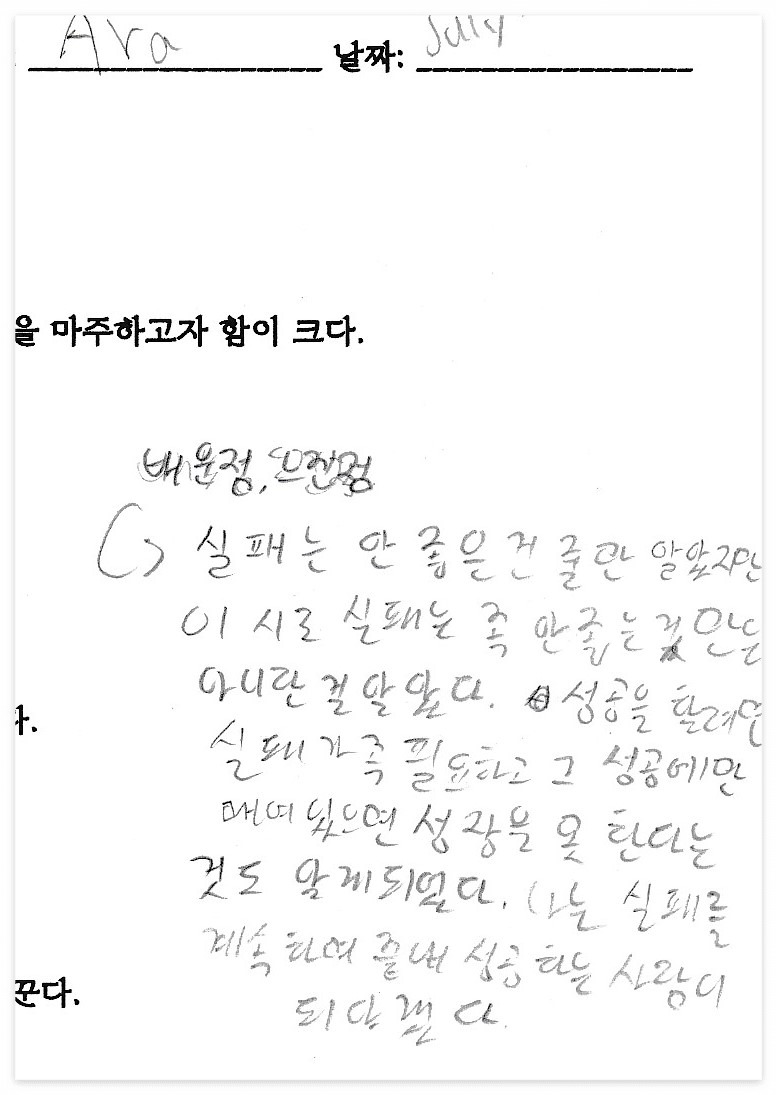 Ara 날짜: July
을 마주하고자 함이 크다.
배운점, 느낀점
실패는 안 좋은건 줄만 알았지만
이 시로 실패는 꼭 안좋는것만은
아니란 걸 알았다. 성공을 할려면
다.
실패가 꼭 필요하고 그 성공에만
매여있으면 성장을 못 한다는
것도 알게되었다. 나는 실패를
계속하여 끝내 성공하는 사람이
꾼다.
되야겠다.